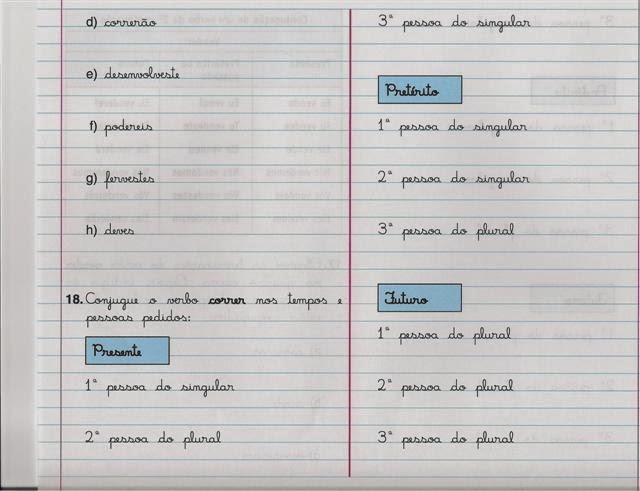 d) correrão
e) desenvolveste
f) podereis
g) fervestes
h) deves
18. Conjugue o verbo correr nos tempos e
pessoas pedidos:
Presente
1ª pessoa do singular
2ª pessoa do plural
3ª pessoa do singular
Pretérito
1ª pessoa do singular
2ª pessoa do singular
3ª pessoa do plural
Futuro
1ª pessoa do plural
2ª pessoa do plural
3ª pessoa do plural